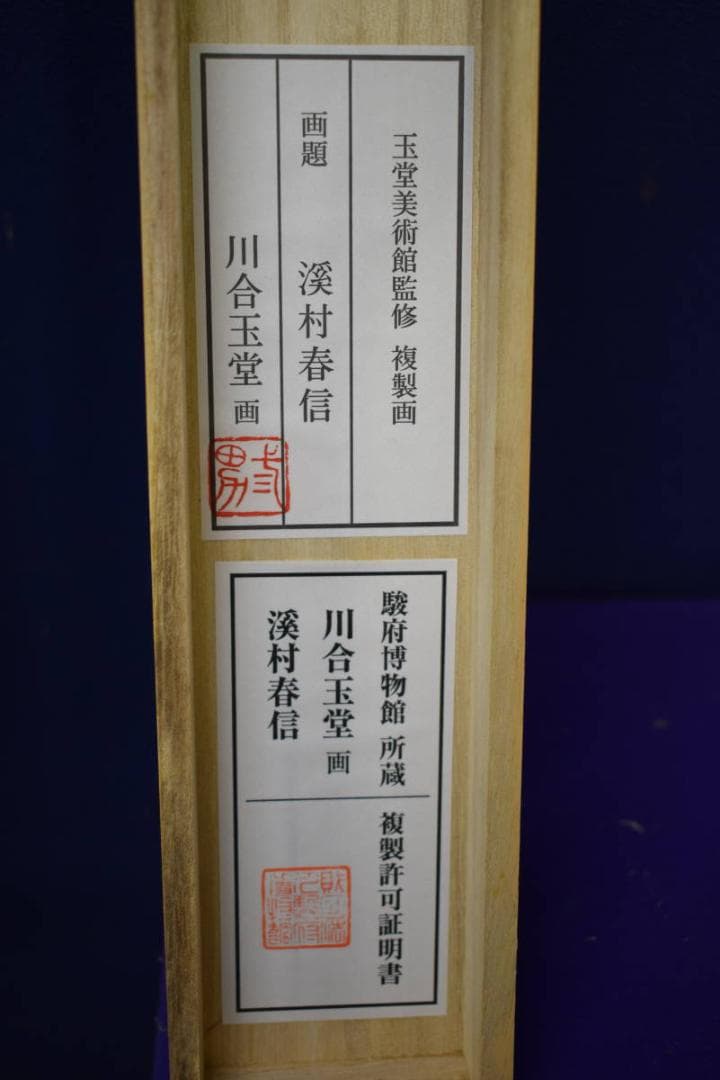 玉堂美術館監修 複製画
画題 溪村春信
川合玉堂 画
駿府博物館 所蔵 複製許可証明書
川合玉堂 画
溪村春信